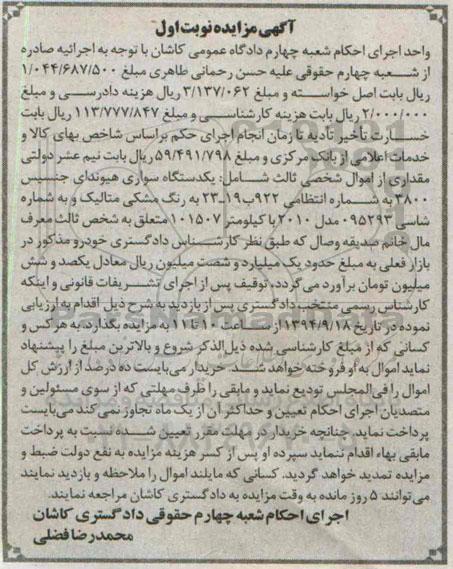 آگهی مزایده نوبت اول
واحد اجرای احکام شعبه چهارم دادگاه عمومی کاشان با توجه به اجرائیه صادره
از شعبه چهارم حقوقی علیه حسن رحمانی طاهری مبلغ ۱/۰۴۴/۶۸۷/۵۰۰
ریال بابت اصل خواسته و مبلغ ۳/۱۳۷/۰۶۲ ریال هزینه دادرسی و مبلغ
۲/۰۰۰/۰۰۰ ریال بابت هزینه کارشناسی و مبلغ ۱۱۳/۷۷۷/۸۴۷ ریال بابت
خسارت تأخیر تأدیه تا زمان انجام اجرای حکم براساس شاخص بهای کالا و
خدمات اعلامی از بانک مرکزی و مبلغ ۵۹/۴۹۱/۷۹۸ ریال بابت نیم عشر دولتی
مقداری از اموال شخصی ثالث شامل: یکدستگاه سواری هیوندای جنسیس
۳۸۰۰ به شماره انتظامی ۹۲۲ب۱۹ـ۲۳ به رنگ مشکی متالیک و به شماره
شاسی ۰۹۵۲۹۳ مدل ۲۰۱۰ با کیلومتر ۱۰۱۵۰۷ متعلق به شخص ثالث معرف
مال خانم صدیقه وصال که طبق نظر کارشناس دادگستری خودرو مذکور در
بازار فعلی به مبلغ حدود یک میلیارد و شصت میلیون ریال معادل یکصد و شش
میلیون تومان برآورد می گردد، توقیف پس از اجرای تشریفات قانونی و اینکه
کارشناس رسمی منتخب دادگستری پس از بازدید به شرح ذیل اقدام به ارزیابی
نموده در تاریخ ۱۳۹۴/۹/۱۸ از ساعت ۱۰ تا ۱۱ به مزایده بگذارد، به هر کس و
کسانی که از مبلغ کارشناسی شده ذیل الذکر شروع و بالاترین مبلغ را پیشنهاد
نماید اموال به او فروخته خواهد شد. خریدار می بایست ده درصد از ارزش کل
اموال را فی المجلس تودیع نماید و مابقی را ظرف مهلتی که از سوی مسئولین و
متصدیان اجرای احکام تعیین و حداکثر آن از یک ماه تجاوز نمی کند می بایست
پرداخت نماید. چنانچه خریدار در مهلت مقرر تعیین شده نسبت به پرداخت
مابقی بهاء اقدام ننماید سپرده او پس از کسر هزینه مزایده به نفع دولت ضبط و
مزایده تمدید خواهد گردید. کسانی که مایلند اموال را ملاحظه و بازدید نمایند
می توانند ۵ روز مانده به وقت مزایده به دادگستری کاشان مراجعه نمایند.
اجرای احکام شعبه چهارم حقوقی دادگستری کاشان
محمدرضا فضلی